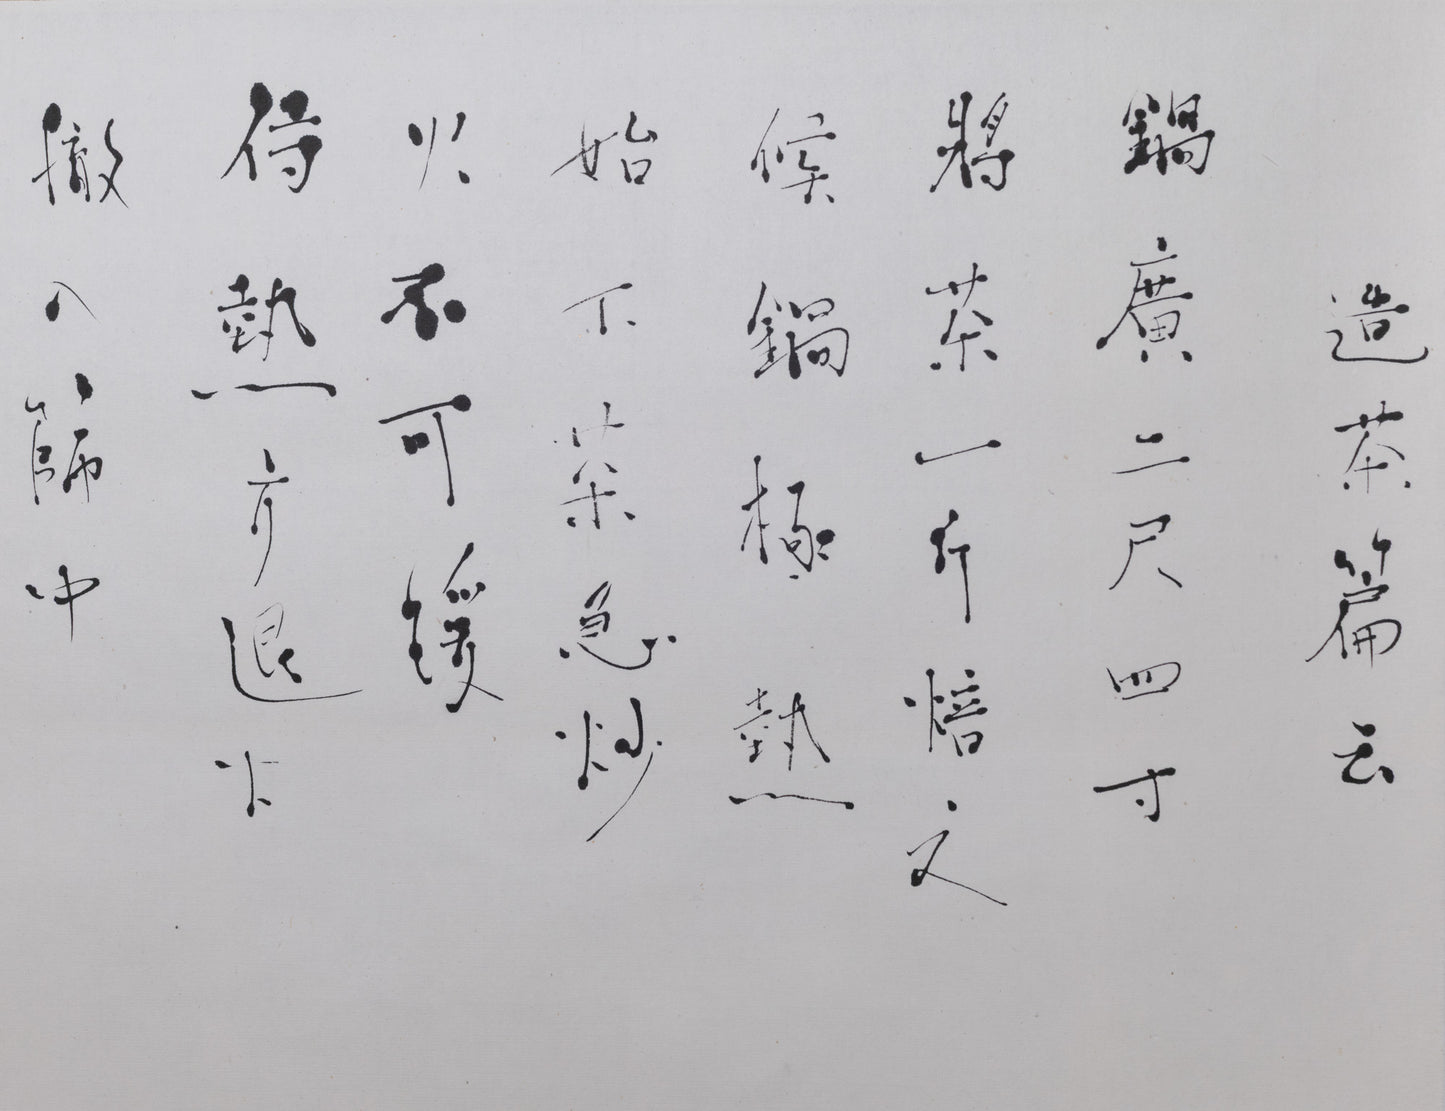 造茶篇云
鍋廣二尺四寸
將茶一斤焙之
候鍋極熱
始下茶急炒
火不可緩
待熱方退火
撤入篩中